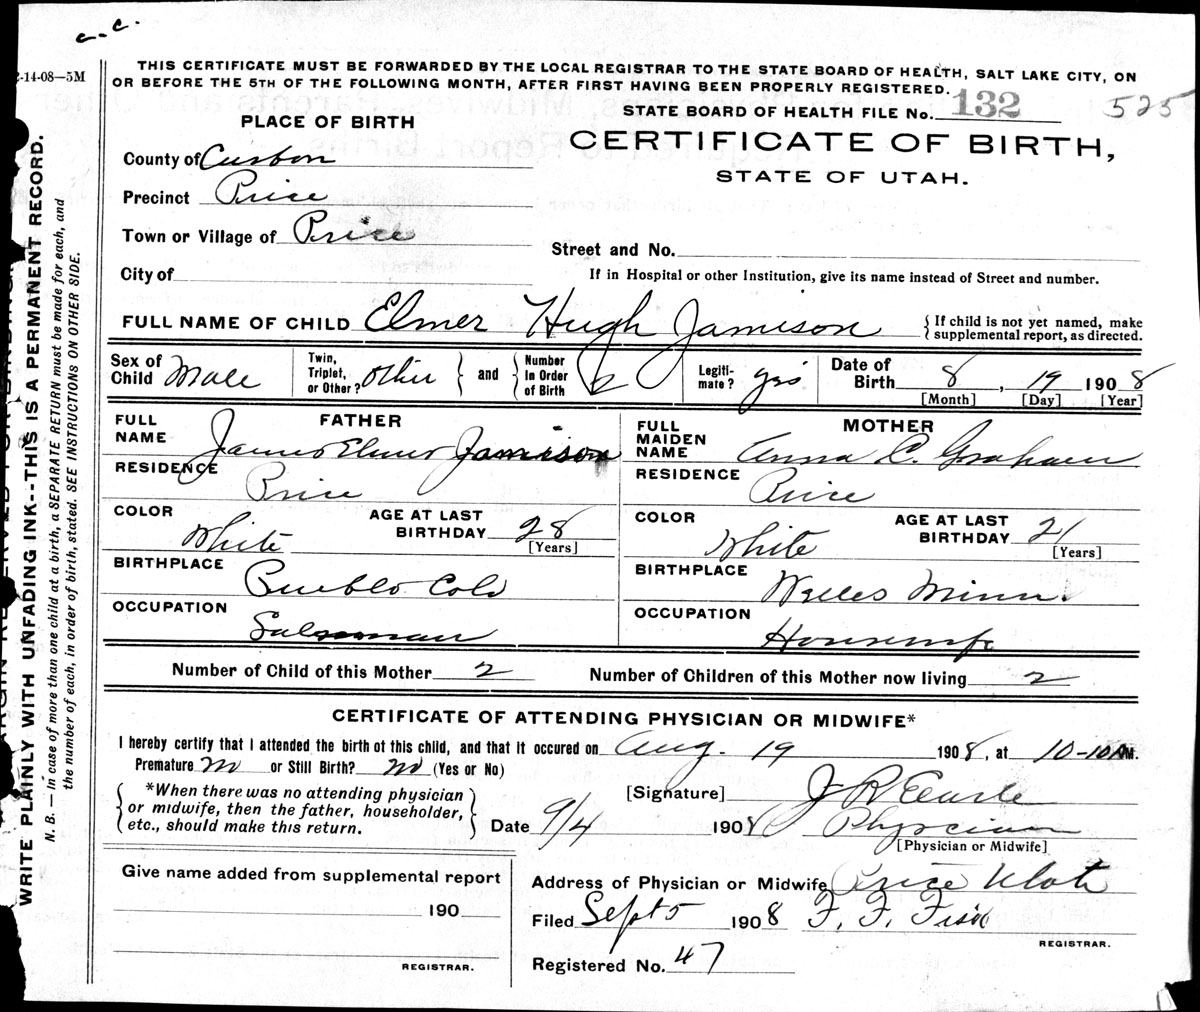 c.c.
2-14-08—5M
THIS CERTIFICATE MUST BE FORWARDED BY THE LOCAL REGISTRAR TO THE STATE BOARD OF HEALTH, SALT LAKE CITY, ON
OR BEFORE THE 5TH OF THE FOLLOWING MONTH, AFTER FIRST HAVING BEEN PROPERLY REGISTERED.
STATE BOARD OF HEALTH FILE No. 132 525
PLACE OF BIRTH
CERTIFICATE OF BIRTH,
STATE OF UTAH.
County of Carbon
Precinct Price
Town or Village of Price
Street and No.
City of
If in Hospital or other Institution, give its name instead of Street and number.
FULL NAME OF CHILD Elmer Hugh Jamison { If child is not yet named, make supplemental report, as directed.
Sex of Child Male Twin, Triplet, or Other? other } and { Number In Order of Birth 2 Legiti-mate? yes Date of Birth 8, 19 1908
[Month] [Day] [Year]
FATHER
FULL NAME James Elmer Jamison
RESIDENCE Price
COLOR White AGE AT LAST BIRTHDAY 28 [Years]
BIRTHPLACE Pueblo Colo
OCCUPATION Salesman
MOTHER
FULL MAIDEN NAME Anna C. Graham
RESIDENCE Price
COLOR White AGE AT LAST BIRTHDAY 21 [Years]
BIRTHPLACE Welles Minn.
OCCUPATION Housewife
Number of Child of this Mother 2 Number of Children of this Mother now living 2
CERTIFICATE OF ATTENDING PHYSICIAN OR MIDWIFE*
I hereby certify that I attended the birth of this child, and that it occured on Aug. 19 1908, at 10-10 AM.
Premature no or Still Birth? no (Yes or No)
{ *When there was no attending physician
or midwife, then the father, householder,
etc., should make this return. }
[Signature] J R
Date 9/4 1908 Physician
[Physician or Midwife]
Give name added from supplemental report
190
REGISTRAR.
Address of Physician or Midwife Price Utah
Filed Sept 5 1908 F. F. Fisk
REGISTRAR.
Registered No. 47
WRITE PLAINLY WITH UNFADING INK--THIS IS A PERMANENT RECORD.
N. B. — In case of more than one child at a birth, a SEPARATE RETURN must be made for each, and
the number of each, in order of birth, stated. SEE INSTRUCTIONS ON OTHER SIDE.